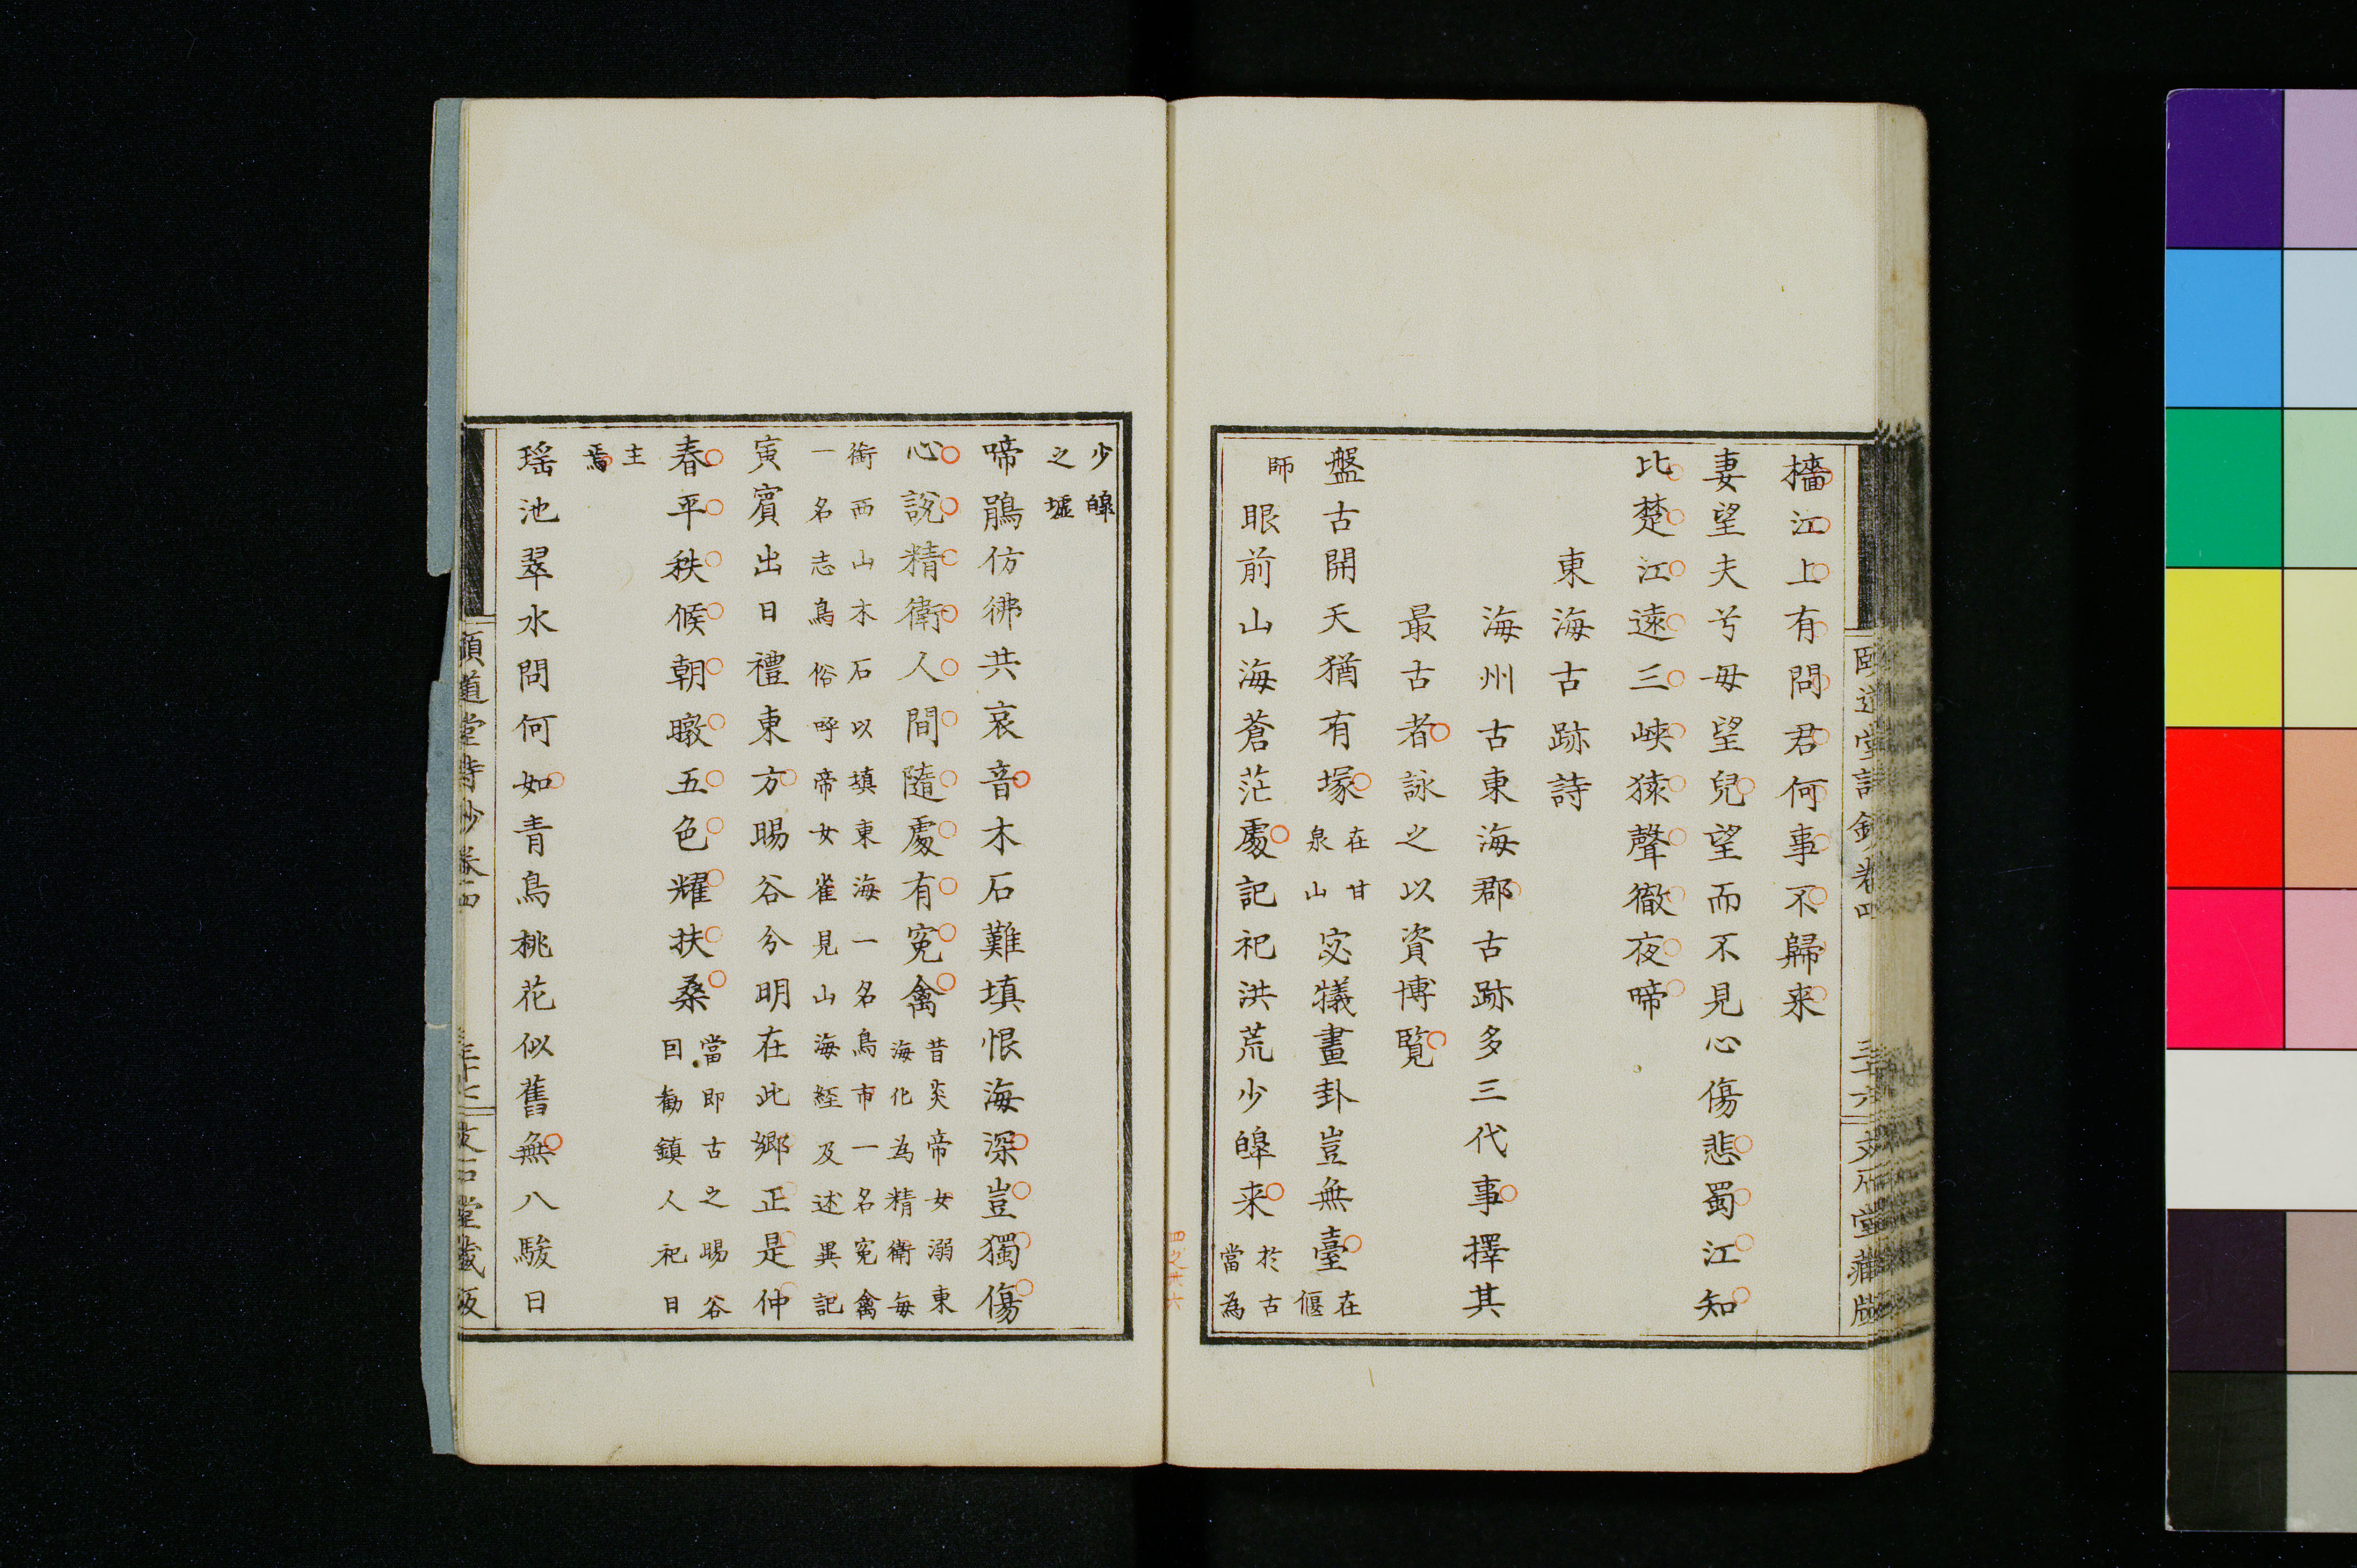 頤道堂詩鈔卷四　三十六　文石堂藏版
檣江上有問君何事不歸来
妻望夫兮毋望兒望而不見心傷悲蜀江知
比楚江遠三峽猿聲徹夜啼
東海古跡詩
海州古東海郡古跡多三代事擇其
最古者詠之以資博覽
盤古開天猶有塚在甘泉山宓犧畫卦豈無臺在偃
師眼前山海蒼茫處記祀洪荒少皥来於古當為
少皥之墟
啼鵑仿彿共哀音木石難填恨海深豈獨傷
心說精衛人間隨處有寃禽昔炎帝女溺東海化為精衛每
銜西山木石以填東海一名鳥市一名寃禽
一名志鳥俗呼帝女雀見山海經及述異記
寅賓出日禮東方暘谷分明在此鄉正是仲
春平秩候朝暾五色耀扶桑當即古之暘谷囙勑鎮人祀日
主焉
瑤池翠水問何如青鳥桃花似舊無八駿日
頤道堂詩鈔卷四　三十七　文石堂藏版